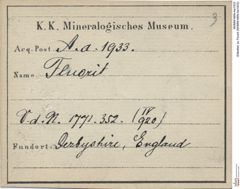 3
K. K. Mineralogisches Museum.
Acq. Post. A. d. 1933.
Name: Fluorit
V. d. N. 1771. 352.
Fundort: Derbyshire, England